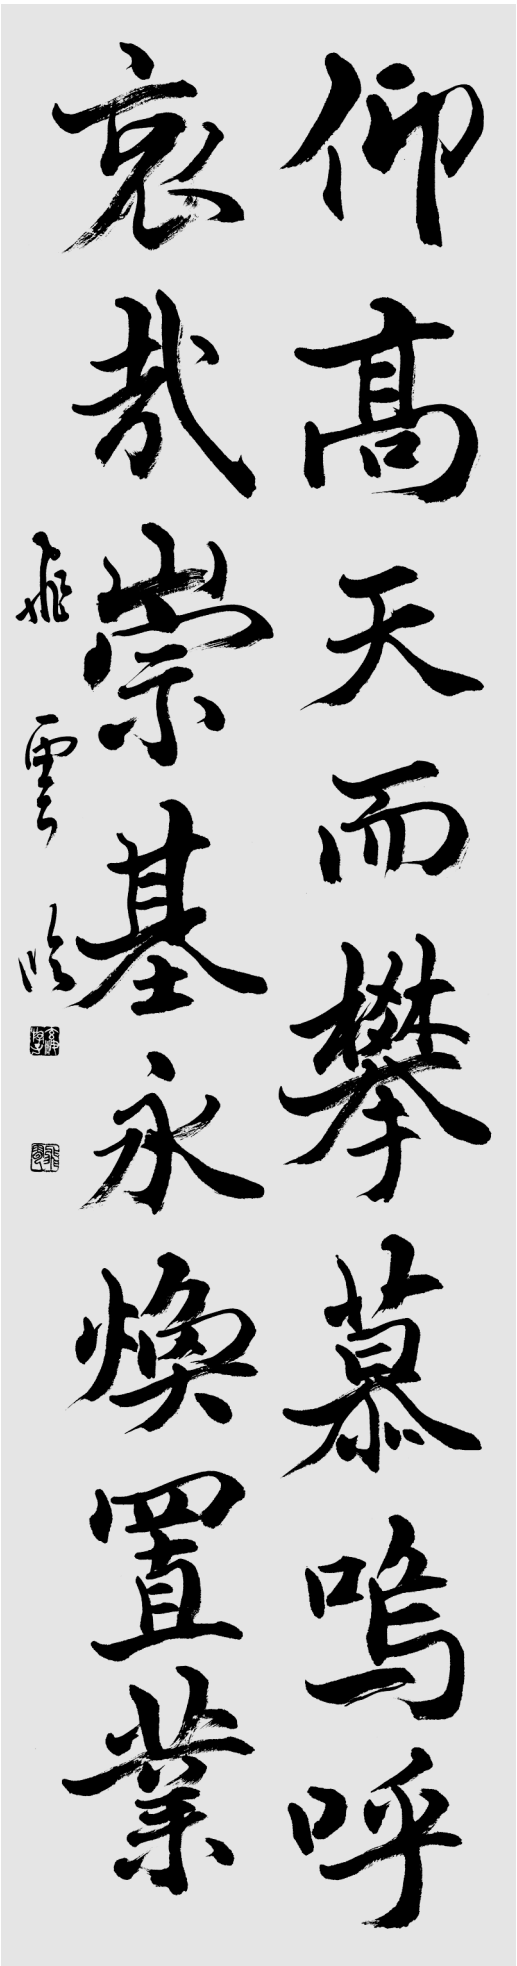 仰高天而攀慕嗚呼
哀哉崇基永煥置業
飛雲臨